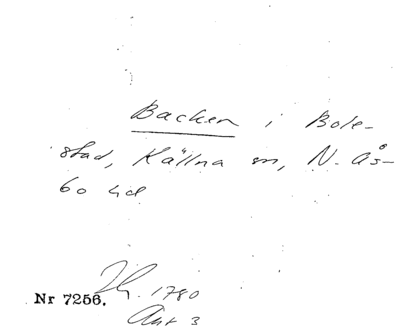 Backen i Bole-
stad, Källna sn, N. Ås-
bo hd
Nr 7256. 1780
Ant 3